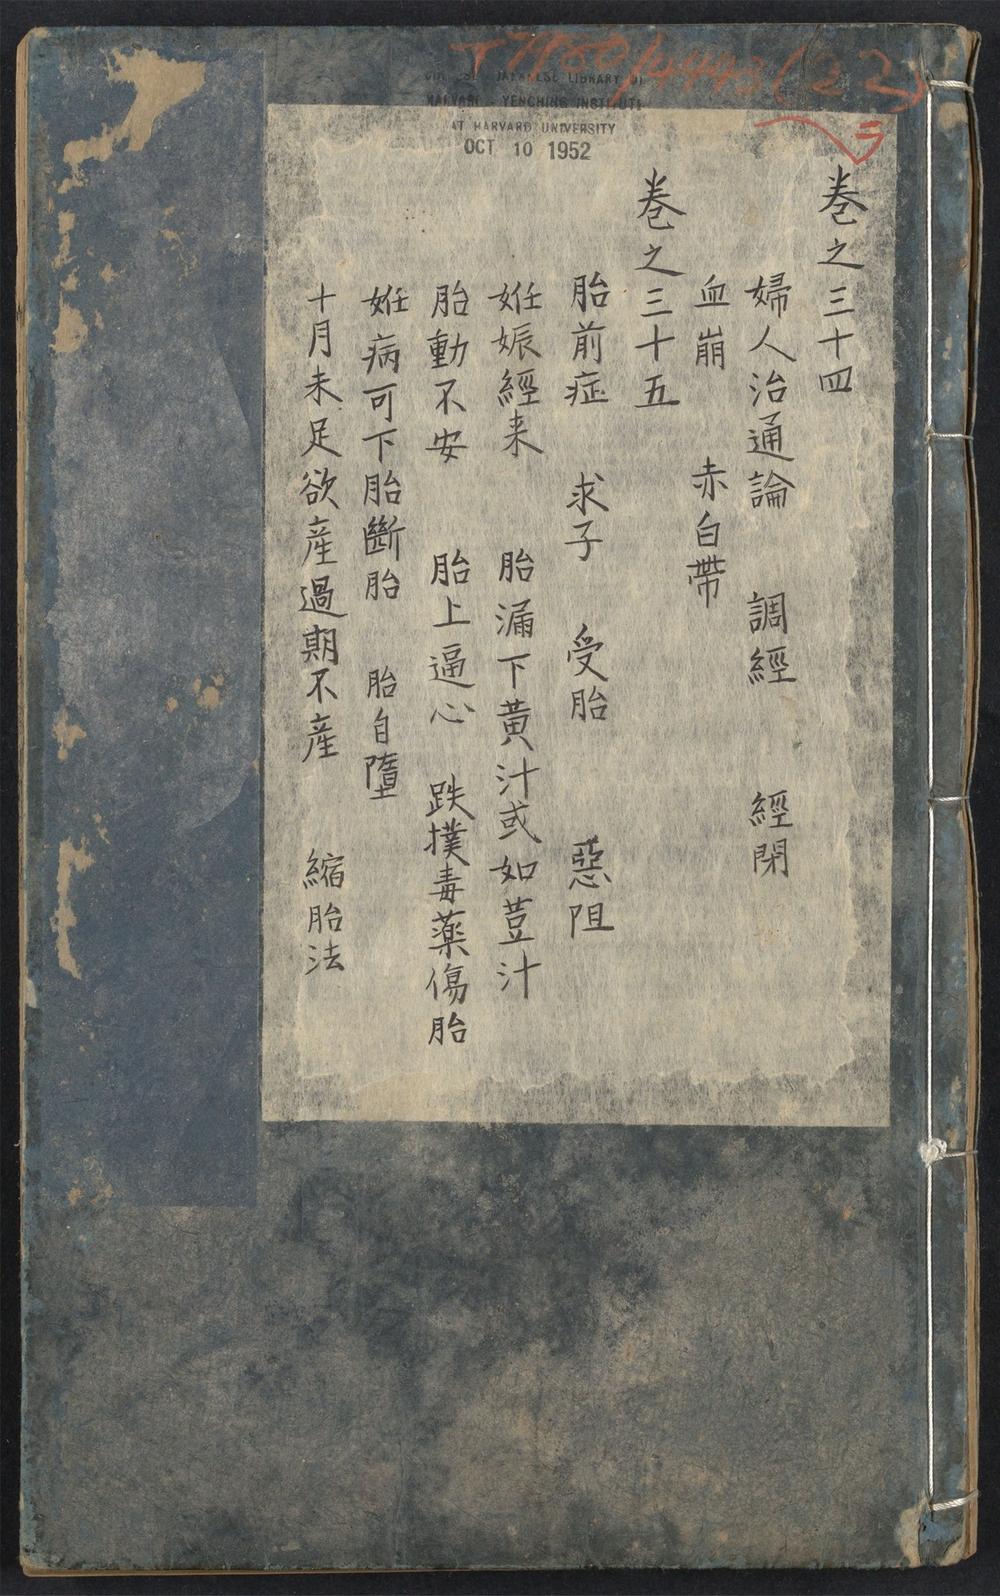 T7980/4443(22)
CHINESE JAPANESE LIBRARY OF
HARVARD YENCHING INSTITUTE
AT HARVARD UNIVERSITY
OCT 10 1952
卷之三十四
婦人治通論 調經 經閉
血崩 赤白帶
卷之三十五
胎前症 求子 受胎 惡阻
姙娠經来 胎漏下黃汁或如荳汁
胎動不安 胎上逼心 跌撲毒藥傷胎
姙病可下胎斷胎 胎自墮
十月未足欲産過期不産 縮胎法